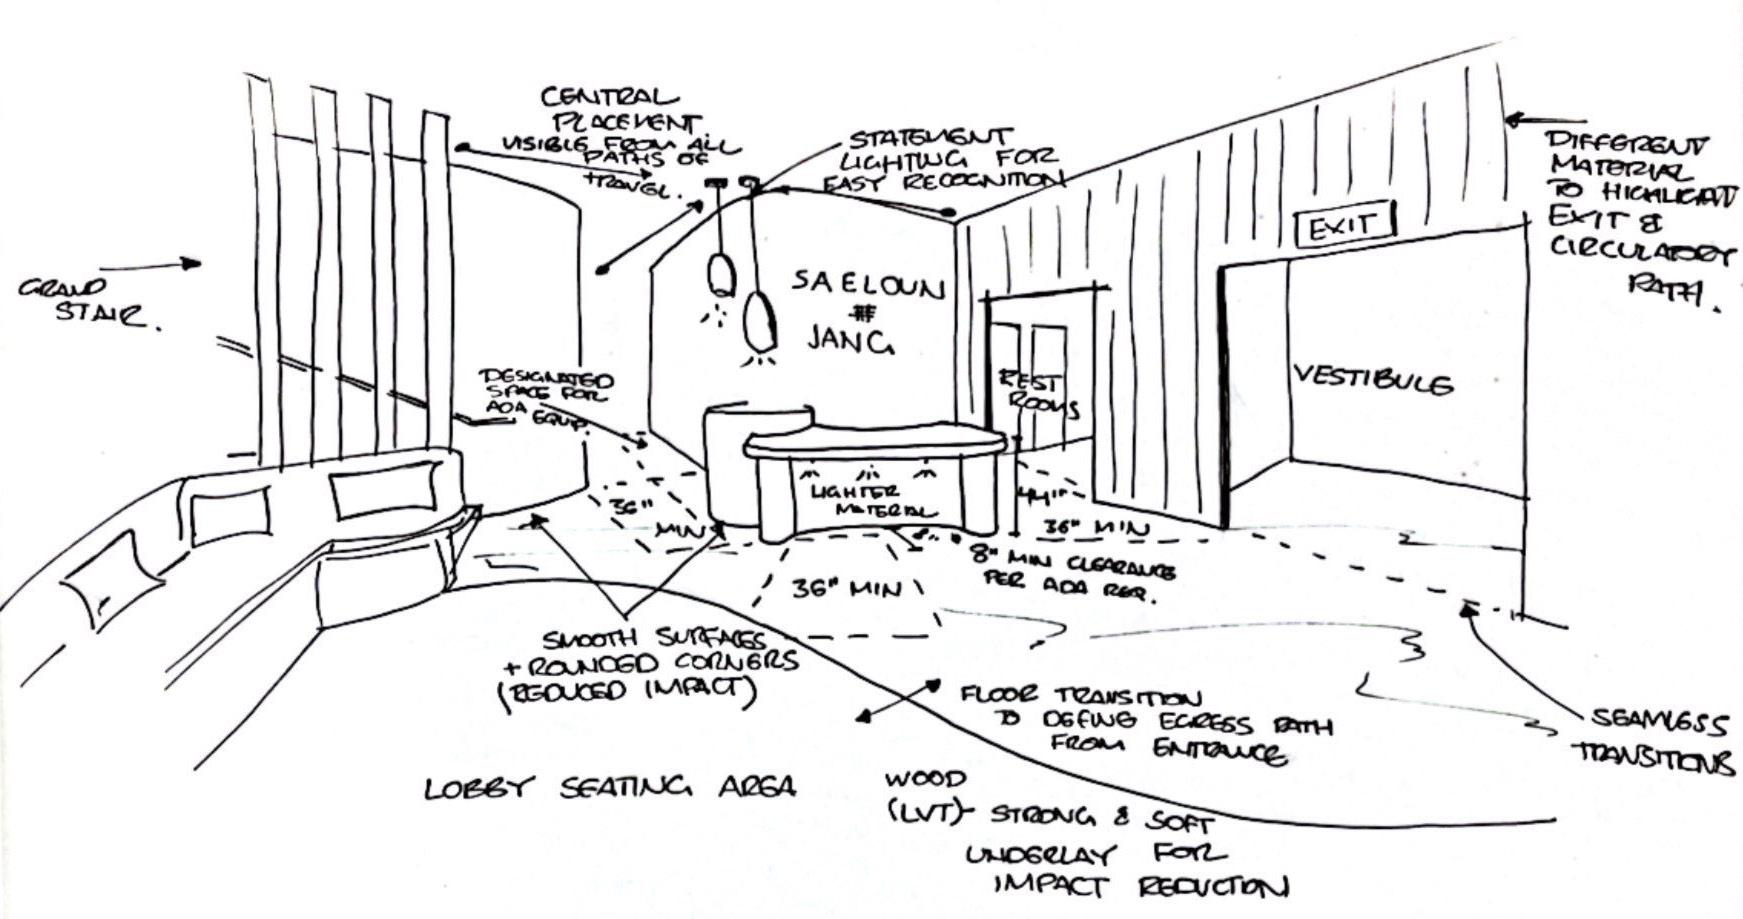 CENTRAL
PLACEMENT
VISIBLE FROM ALL
PATHS OF
TRAVEL.
STATEMENT
LIGHTING FOR
EASY RECOGNITION
DIFFERENT
MATERIAL
TO HIGHLIGHT
EXIT &
CIRCULATORY
PATH.
EXIT
GRAND
STAIR.
SAELOUN
#
JANG
DESIGNATED
SPACE FOR
ADA EQUIP.
REST
ROOMS
VESTIBULE
LIGHTER
MATERIAL
36"
MIN
44"
36" MIN
8" MIN CLEARANCE
PER ADA REQ.
36" MIN
SMOOTH SURFACES
+ ROUNDED CORNERS
(REDUCED IMPACT)
FLOOR TRANSITION
TO DEFINE EGRESS PATH
FROM ENTRANCE
SEAMLESS
TRANSITIONS
LOBBY SEATING AREA
WOOD
(LVT)- STRONG & SOFT
UNDERLAY FOR
IMPACT REDUCTION